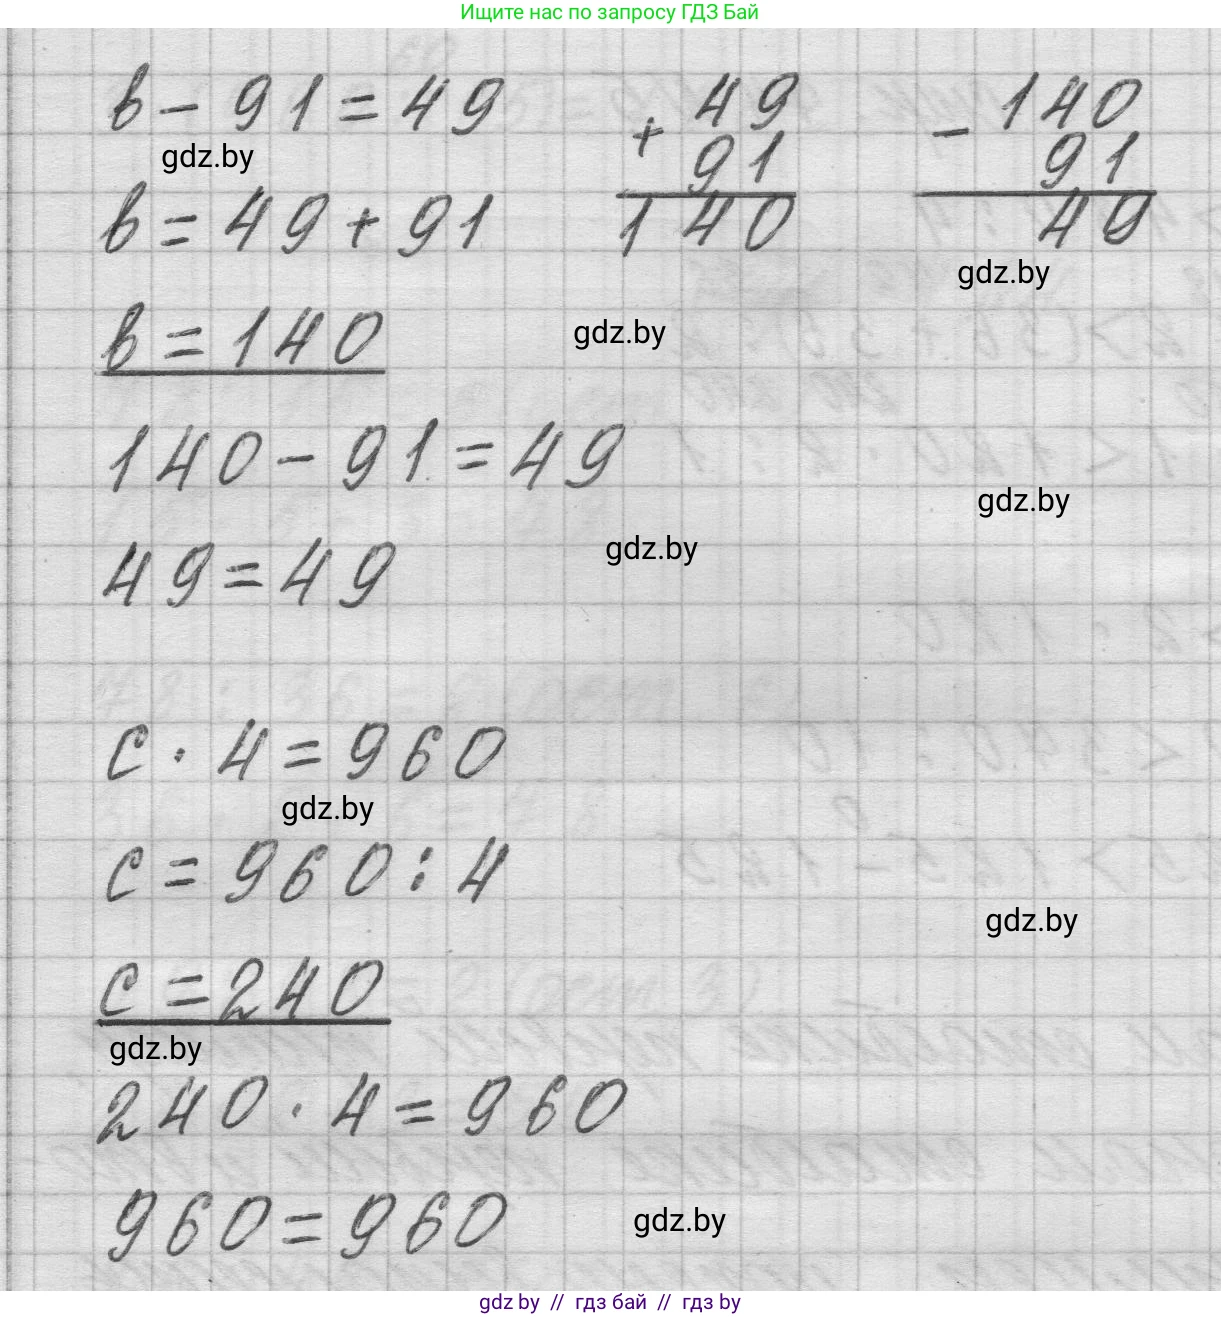 Ищите нас по запросу ГДЗ Бай
в - 91 = 49
gdz.by
в = 49 + 91
в = 140
140 - 91 = 49
49 = 49
+ 49
91
140
- 140
91
49
gdz.by
gdz.by
gdz.by
gdz.by
с · 4 = 960
gdz.by
с = 960 : 4
gdz.by
с = 240
gdz.by
240 · 4 = 960
960 = 960
gdz.by
gdz.by // гдз бай // гдз by